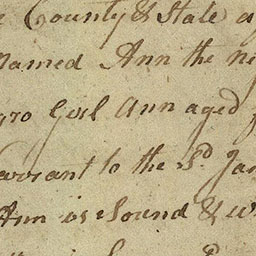 County & State a
Named Ann the ne
gro Girl Ann aged
Warrant to the Sd. Ja
Ann is Sound & w